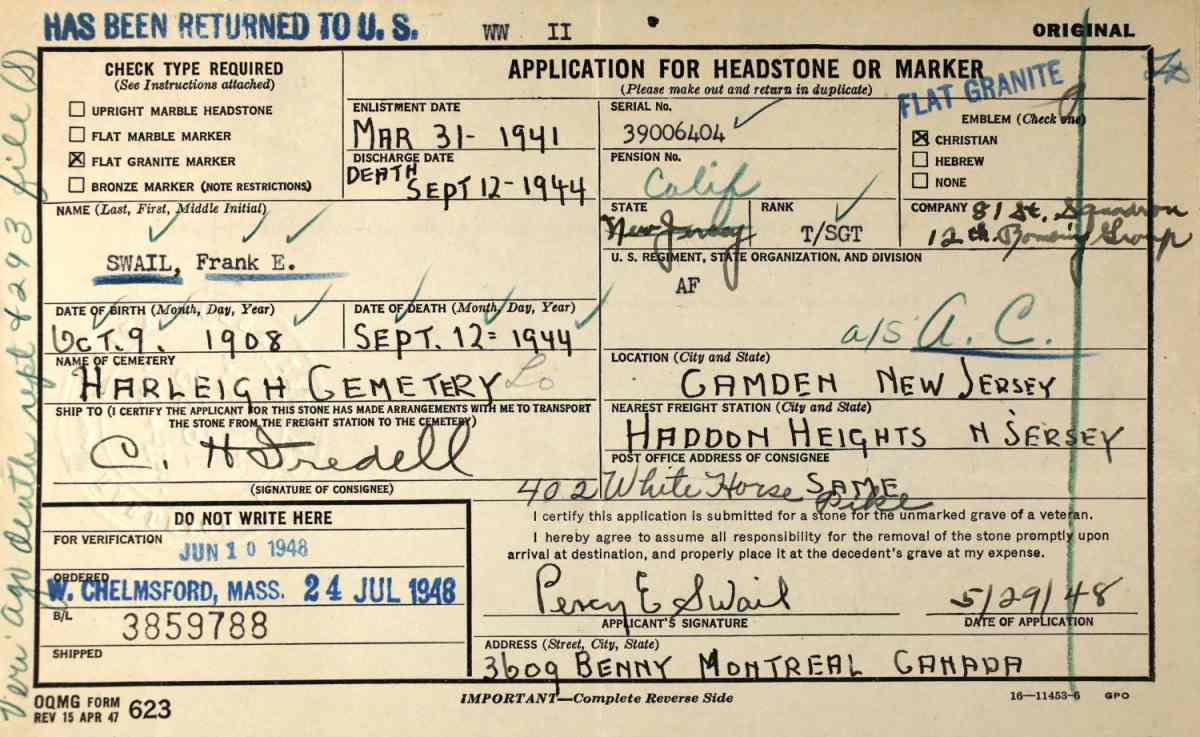 HAS BEEN RETURNED TO U. S.
WW II
ORIGINAL
CHECK TYPE REQUIRED
(See Instructions attached)
UPRIGHT MARBLE HEADSTONE
FLAT MARBLE MARKER
FLAT GRANITE MARKER
BRONZE MARKER (NOTE RESTRICTIONS)
APPLICATION FOR HEADSTONE OR MARKER
(Please make out and return in duplicate)
ENLISTMENT DATE
MAR 31- 1941
DISCHARGE DATE
DEATH SEPT 12-1944
SERIAL No.
39006404
PENSION No.
Calif
FLAT GRANITE
EMBLEM (Check one)
CHRISTIAN
HEBREW
NONE
NAME (Last, First, Middle Initial)
SWAIL, Frank E.
STATE
New Jersey
RANK
T/SGT
COMPANY 81 St. Squadron
12th. Bombing Group
U. S. REGIMENT, STATE ORGANIZATION, AND DIVISION
AF
a/s A. C.
DATE OF BIRTH (Month, Day, Year)
OCT. 9. 1908
DATE OF DEATH (Month, Day, Year)
SEPT. 12= 1944
NAME OF CEMETERY
HARLEIGH CEMETERY
LOCATION (City and State)
CAMDEN NEW JERSEY
SHIP TO (I CERTIFY THE APPLICANT FOR THIS STONE HAS MADE ARRANGEMENTS WITH ME TO TRANSPORT
THE STONE FROM THE FREIGHT STATION TO THE CEMETERY)
C. H Iredell
(SIGNATURE OF CONSIGNEE)
NEAREST FREIGHT STATION (City and State)
HADDON HEIGHTS N JERSEY
POST OFFICE ADDRESS OF CONSIGNEE
SAME
402 White Horse Pike
DO NOT WRITE HERE
FOR VERIFICATION
JUN 10 1948
ORDERED
W. CHELMSFORD, MASS. 24 JUL 1948
B/L
3859788
SHIPPED
I certify this application is submitted for a stone for the unmarked grave of a veteran.
I hereby agree to assume all responsibility for the removal of the stone promptly upon
arrival at destination, and properly place it at the decedent's grave at my expense.
Percy E Swail
APPLICANT'S SIGNATURE
5/29/48
DATE OF APPLICATION
ADDRESS (Street, City, State)
3609 BENNY MONTREAL CANADA
OQMG FORM
REV 15 APR 47 623
IMPORTANT—Complete Reverse Side
16—11453-6 GPO
Veri ago death rept & 293 file (S)